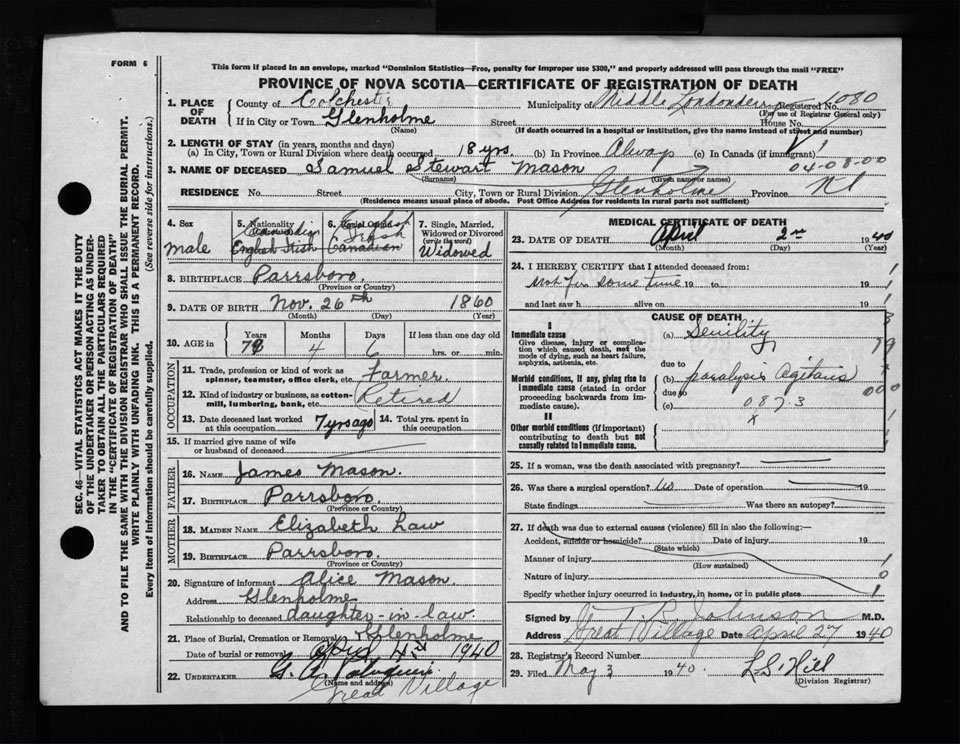 FORM 6
This form if placed in an envelope, marked "Dominion Statistics—Free, penalty for improper use $300," and properly addressed will pass through the mail "FREE"
PROVINCE OF NOVA SCOTIA—CERTIFICATE OF REGISTRATION OF DEATH
SEC. 46—VITAL STATISTICS ACT MAKES IT THE DUTY
OF THE UNDERTAKER OR PERSON ACTING AS UNDER-
TAKER TO OBTAIN ALL THE PARTICULARS REQUIRED
IN THE "CERTIFICATE OF REGISTRATION OF DEATH"
AND TO FILE THE SAME WITH THE DIVISION REGISTRAR WHO SHALL ISSUE THE BURIAL PERMIT.
WRITE PLAINLY WITH UNFADING INK. THIS IS A PERMANENT RECORD.
Every item of Information should be carefully supplied. (See reverse side for instructions.)
1. PLACE OF DEATH
County of Colchester Municipality of Middle Londonderry Registered No. 1080
(For use of Registrar General only)
If in City or Town Glenholme Street House No.
(Name) (If death occurred in a hospital or institution, give the name instead of street and number)
2. LENGTH OF STAY (in years, months and days)
(a) In City, Town or Rural Division where death occurred 18 yrs (b) In Province Always (c) In Canada (if immigrant)
04-08-00
3. NAME OF DECEASED Samual Stewart Mason
(Surname) (Given name or names)
RESIDENCE No. Street City, Town or Rural Division Glenholme Province NS
(Residence means usual place of abode. Post Office Address for residents in rural parts not sufficient)
4. Sex male
5. Nationality Canadian
English Irish
6. Racial Origin English Irish
Canadian
7. Single, Married, Widowed or Divorced (write the word) Widowed
8. BIRTHPLACE Parrsboro.
(Province or Country)
9. DATE OF BIRTH Nov. 26th 1860
(Month) (Day) (Year)
10. AGE in Years 79 Months 4 Days 6 If less than one day old hrs. or min.
OCCUPATION
11. Trade, profession or kind of work as spinner, teamster, office clerk, etc. Farmer.
12. Kind of industry or business, as cotton-mill, lumbering, bank, etc. Retired
13. Date deceased last worked at this occupation 7 yrs ago 14. Total yrs. spent in this occupation
15. If married give name of wife or husband of deceased
FATHER
16. NAME James Mason.
17. BIRTHPLACE Parrsboro
(Province or Country)
MOTHER
18. MAIDEN NAME Elizabeth Law
19. BIRTHPLACE Parrsboro.
(Province or Country)
20. Signature of informant Alice Mason.
Address Glenholme
Relationship to deceased daughter-in-law
21. Place of Burial, Cremation or Removal Glenholme
Date of burial or removal April 4th 1940
22. UNDERTAKER G. A.
(Name and address)
Great Village
MEDICAL CERTIFICATE OF DEATH
23. DATE OF DEATH April 2nd 1940
(Month) (Day) (Year)
24. I HEREBY CERTIFY that I attended deceased from:
Not for some time 19 to 19
and last saw h alive on 19
CAUSE OF DEATH
I
Immediate cause (a) Senility
Give disease, injury or complication which caused death, not the mode of dying, such as heart failure, asphyxia, asthenia, etc.
due to
Morbid conditions, if any, giving rise to immediate cause (stated in order proceeding backwards from immediate cause).
(b) paralysis agitans
due to
(c) 087.3
x
II
Other morbid conditions (if important) contributing to death but not causally related to immediate cause.
25. If a woman, was the death associated with pregnancy?
26. Was there a surgical operation? No Date of operation 19
State findings Was there an autopsy?
27. If death was due to external causes (violence) fill in also the following:—
Accident, suicide or homicide? Date of injury 19
(State which)
Manner of injury
(How sustained)
Nature of injury
Specify whether injury occurred in industry, in home, or in public place
Signed by T. B. Johnson M.D.
Address Great Village Date April 27 1940
28. Registrar's Record Number
29. Filed May 3 1940. L S Hill
(Division Registrar)